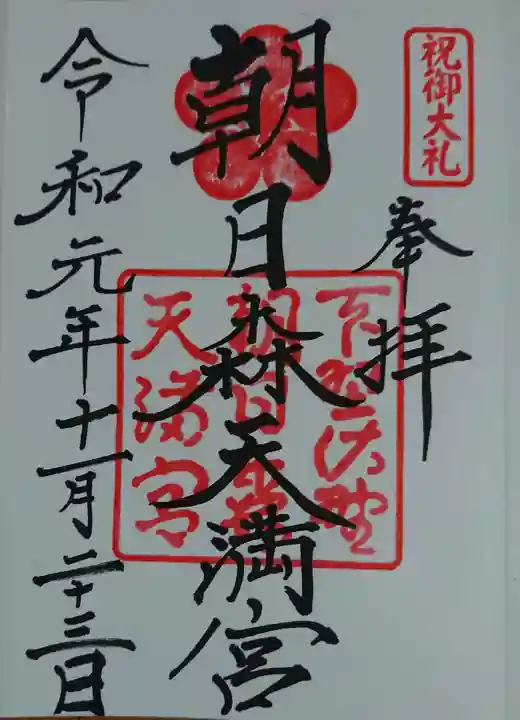 祝御大礼
奉拝
下野佐野
朝日森
天満宮
朝日森天満宮
令和元年十一月二十三日